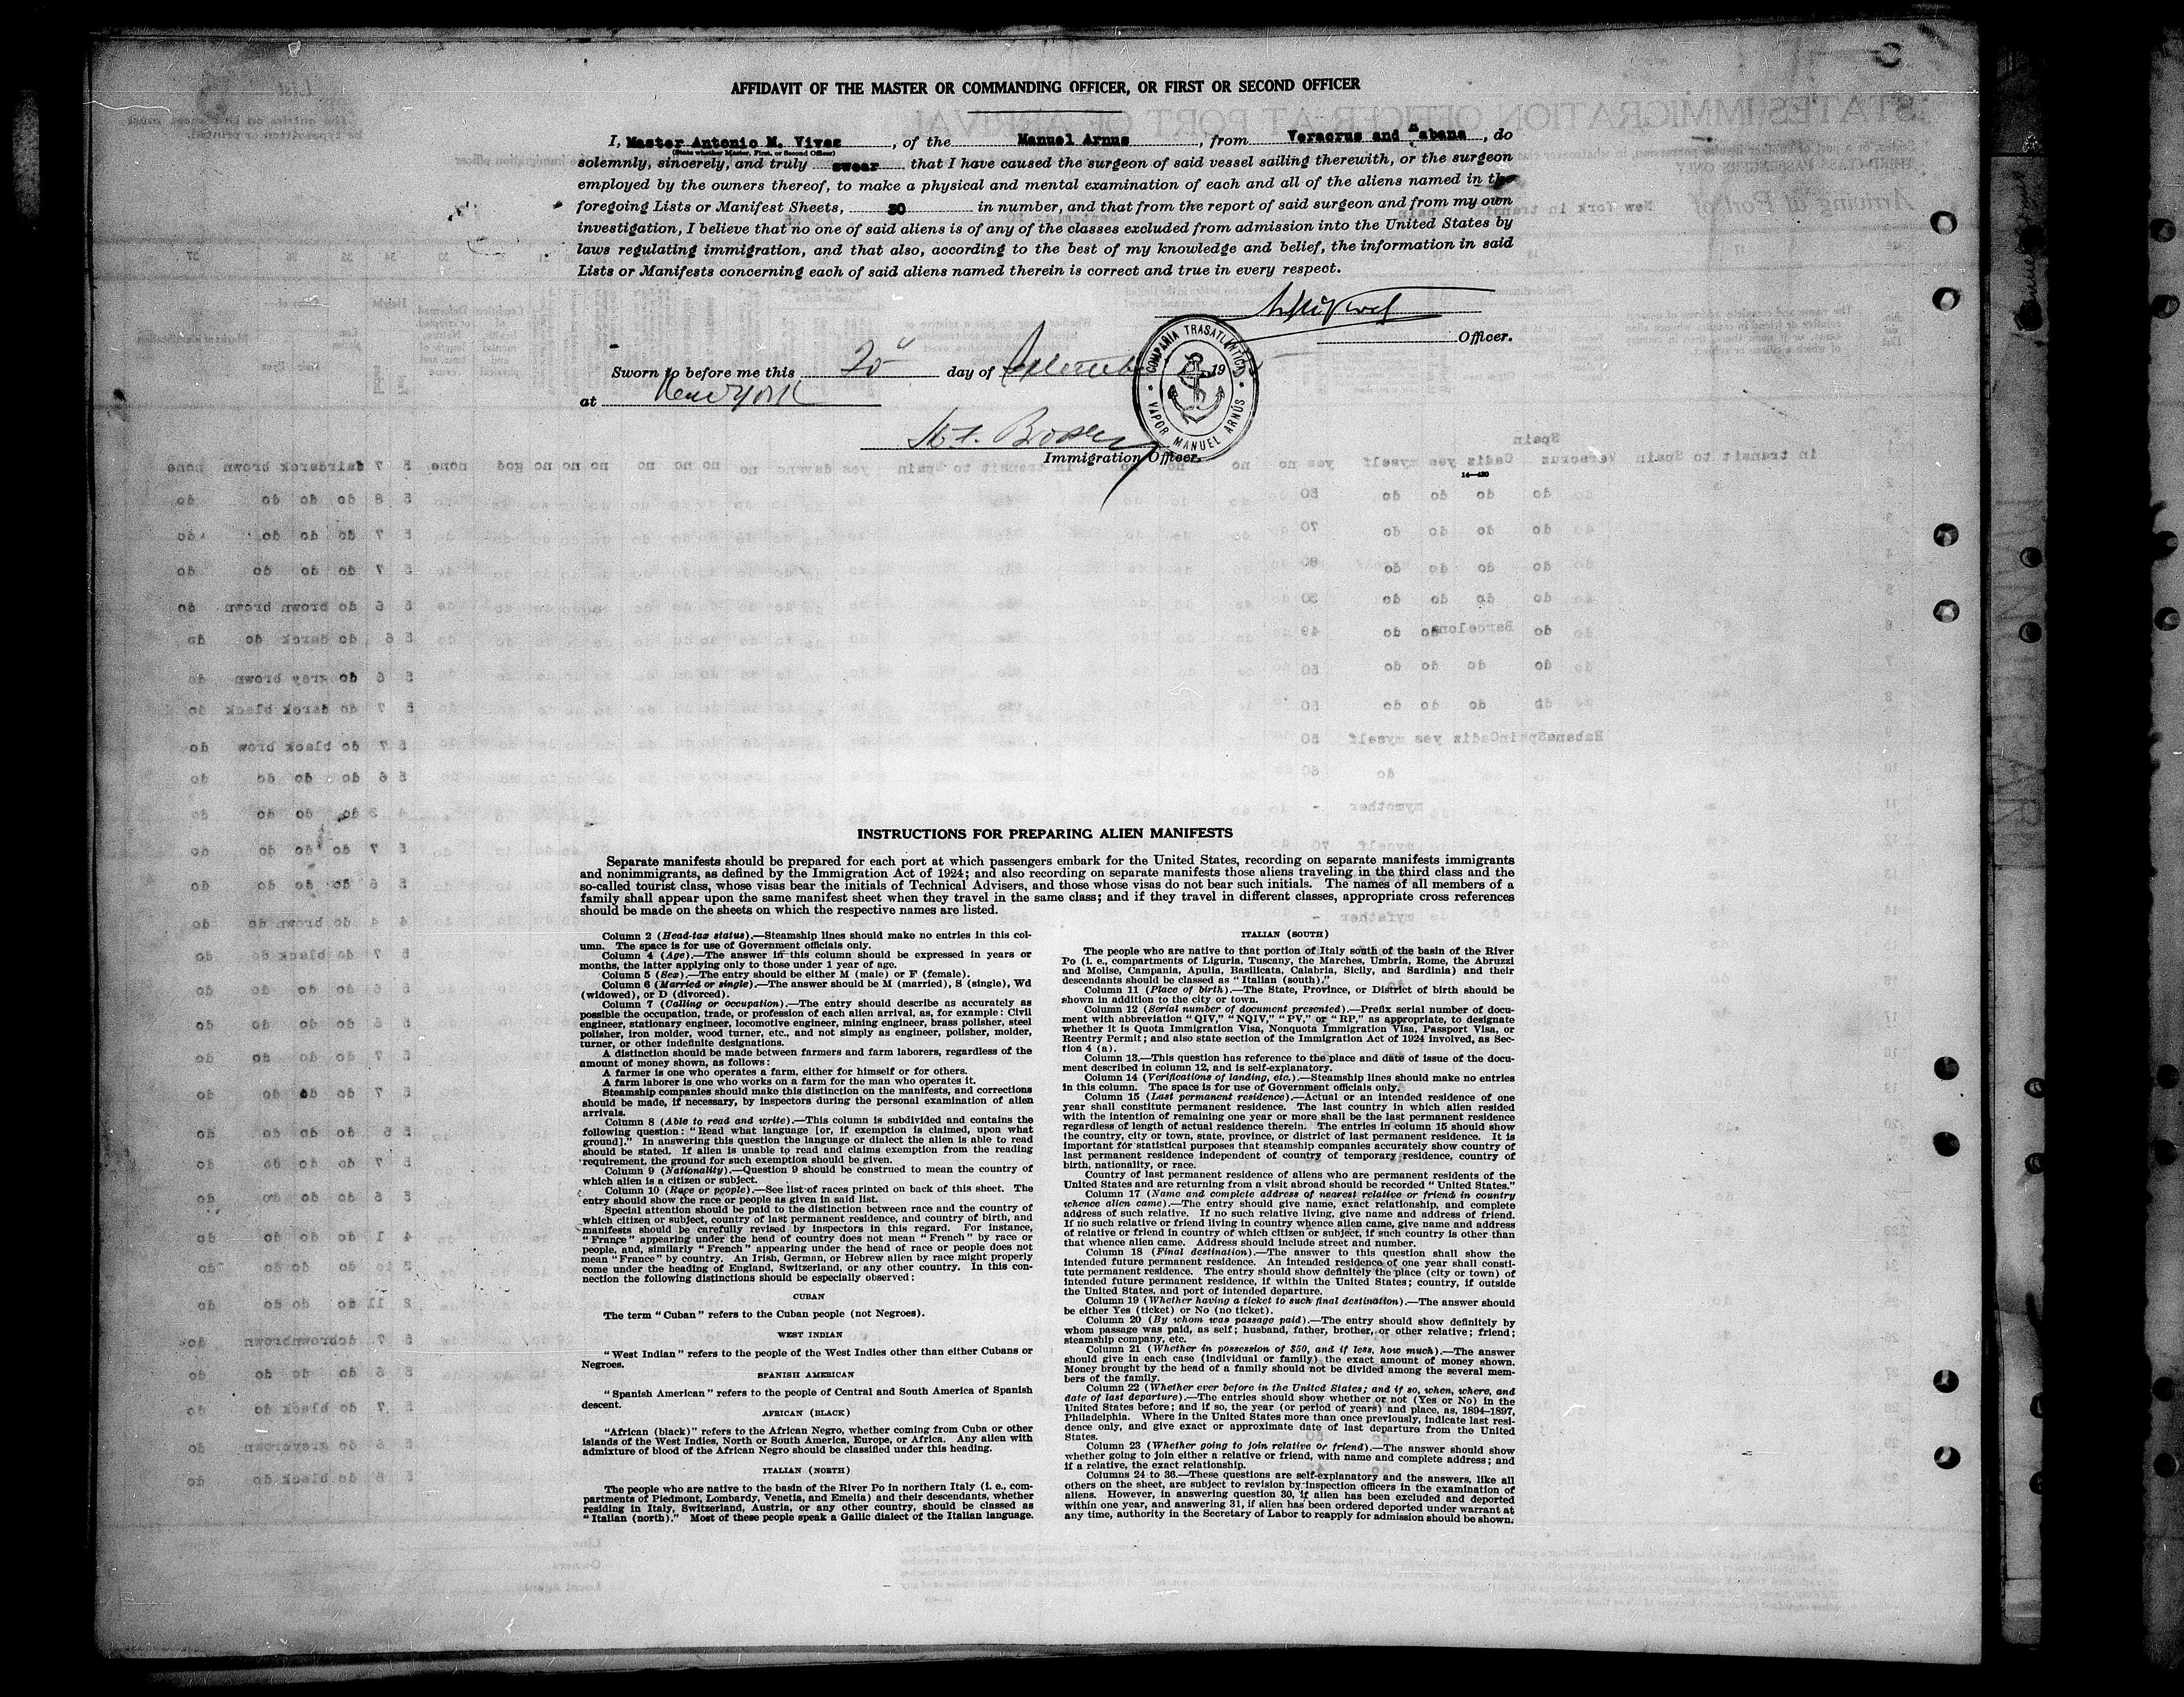 AFFIDAVIT OF THE MASTER OR COMMANDING OFFICER, OR FIRST OR SECOND OFFICER
I, Master Antonio M. Vives, of the Manuel Arnus, from Veracrus and Habana, do
(State whether Master, First, or Second Officer)
solemnly, sincerely, and truly swear that I have caused the surgeon of said vessel sailing therewith, or the surgeon
employed by the owners thereof, to make a physical and mental examination of each and all of the aliens named in the
foregoing Lists or Manifest Sheets, 30 in number, and that from the report of said surgeon and from my own
investigation, I believe that no one of said aliens is of any of the classes excluded from admission into the United States by
laws regulating immigration, and that also, according to the best of my knowledge and belief, the information in said
Lists or Manifests concerning each of said aliens named therein is correct and true in every respect.
Officer.
Sworn to before me this 20 day of September 19
at New York
COMPAÑIA TRASATLANTICA
VAPOR MANUEL ARNÚS
Immigration Officer.
14—430
INSTRUCTIONS FOR PREPARING ALIEN MANIFESTS
Separate manifests should be prepared for each port at which passengers embark for the United States, recording on separate manifests immigrants
and nonimmigrants, as defined by the Immigration Act of 1924; and also recording on separate manifests those aliens traveling in the third class and the
so-called tourist class, whose visas bear the initials of Technical Advisers, and those whose visas do not bear such initials. The names of all members of a
family shall appear upon the same manifest sheet when they travel in the same class; and if they travel in different classes, appropriate cross references
should be made on the sheets on which the respective names are listed.
Column 2 (Head-tax status).—Steamship lines should make no entries in this col-
umn. The space is for use of Government officials only.
Column 4 (Age).—The answer in this column should be expressed in years or
months, the latter applying only to those under 1 year of age.
Column 5 (Sex).—The entry should be either M (male) or F (female).
Column 6 (Married or single).—The answer should be M (married), S (single), Wd
(widowed), or D (divorced).
Column 7 (Calling or occupation).—The entry should describe as accurately as
possible the occupation, trade, or profession of each alien arrival, as, for example: Civil
engineer, stationary engineer, locomotive engineer, mining engineer, brass polisher, steel
polisher, iron molder, wood turner, etc., and not simply as engineer, polisher, molder,
turner, or other indefinite designations.
A distinction should be made between farmers and farm laborers, regardless of the
amount of money shown, as follows:
A farmer is one who operates a farm, either for himself or for others.
A farm laborer is one who works on a farm for the man who operates it.
Steamship companies should make this distinction on the manifests, and corrections
should be made, if necessary, by inspectors during the personal examination of alien
arrivals.
Column 8 (Able to read and write).—This column is subdivided and contains the
following question: "Read what language [or, if exemption is claimed, upon what
ground]." In answering this question the language or dialect the alien is able to read
should be stated. If alien is unable to read and claims exemption from the reading
requirement, the ground for such exemption should be given.
Column 9 (Nationality).—Question 9 should be construed to mean the country of
which alien is a citizen or subject.
Column 10 (Race or people).—See list of races printed on back of this sheet. The
entry should show the race or people as given in said list.
Special attention should be paid to the distinction between race and the country of
which citizen or subject, country of last permanent residence, and country of birth, and
manifests should be carefully revised by inspectors in this regard. For instance,
"France" appearing under the head of country does not mean "French" by race or
people, and, similarly "French" appearing under the head of race or people does not
mean "France" by country. An Irish, German, or Hebrew alien by race might properly
come under the heading of England, Switzerland, or any other country. In this con-
nection the following distinctions should be especially observed:
CUBAN
The term "Cuban" refers to the Cuban people (not Negroes).
WEST INDIAN
"West Indian" refers to the people of the West Indies other than either Cubans or
Negroes.
SPANISH AMERICAN
"Spanish American" refers to the people of Central and South America of Spanish
descent.
AFRICAN (BLACK)
"African (black)" refers to the African Negro, whether coming from Cuba or other
islands of the West Indies, North or South America, Europe, or Africa. Any alien with
admixture of blood of the African Negro should be classified under this heading.
ITALIAN (NORTH)
The people who are native to the basin of the River Po in northern Italy (i. e., com-
partments of Piedmont, Lombardy, Venetia, and Emelia) and their descendants, whether
residing in Italy, Switzerland, Austria, or any other country, should be classed as
"Italian (north)." Most of these people speak a Gallic dialect of the Italian language.
ITALIAN (SOUTH)
The people who are native to that portion of Italy south of the basin of the River
Po (i. e., compartments of Liguria, Tuscany, the Marches, Umbria, Rome, the Abruzzi
and Molise, Campania, Apulia, Basilicata, Calabria, Sicily, and Sardinia) and their
descendants should be classed as "Italian (south)."
Column 11 (Place of birth).—The State, Province, or District of birth should be
shown in addition to the city or town.
Column 12 (Serial number of document presented).—Prefix serial number of docu-
ment with abbreviation "QIV," "NQIV," "PV," or "RP," as appropriate, to designate
whether it is Quota Immigration Visa, Nonquota Immigration Visa, Passport Visa, or
Reentry Permit; and also state section of the Immigration Act of 1924 involved, as Sec-
tion 4 (a).
Column 13.—This question has reference to the place and date of issue of the docu-
ment described in column 12, and is self-explanatory.
Column 14 (Verifications of landing, etc.).—Steamship lines should make no entries
in this column. The space is for use of Government officials only.
Column 15 (Last permanent residence).—Actual or an intended residence of one
year shall constitute permanent residence. The last country in which alien resided
with the intention of remaining one year or more shall be the last permanent residence
regardless of length of actual residence therein. The entries in column 15 should show
the country, city or town, state, province, or district of last permanent residence. It is
important for statistical purposes that steamship companies accurately show country of
last permanent residence independent of country of temporary residence, country of
birth, nationality, or race.
Country of last permanent residence of aliens who are permanent residents of the
United States and are returning from a visit abroad should be recorded "United States."
Column 17 (Name and complete address of nearest relative or friend in country
whence alien came).—The entry should give name, exact relationship, and complete
address of such relative. If no such relative living, give name and address of friend.
If no such relative or friend living in country whence alien came, give name and address
of relative or friend in country of which citizen or subject, if such country is other than
that whence alien came. Address should include street and number.
Column 18 (Final destination).—The answer to this question shall show the
intended future permanent residence. An intended residence of one year shall consti-
tute permanent residence. The entry should show definitely the place (city or town) of
intended future permanent residence, if within the United States; country, if outside
the United States, and port of intended departure.
Column 19 (Whether having a ticket to such final destination).—The answer should
be either Yes (ticket) or No (no ticket).
Column 20 (By whom was passage paid).—The entry should show definitely by
whom passage was paid, as self; husband, father, brother, or other relative; friend;
steamship company, etc.
Column 21 (Whether in possession of $50, and if less, how much).—The answer
should give in each case (individual or family) the exact amount of money shown.
Money brought by the head of a family should not be divided among the several mem-
bers of the family.
Column 22 (Whether ever before in the United States; and if so, when, where, and
date of last departure).—The entries should show whether or not (Yes or No) in the
United States before; and if so, the year (or period of years) and place, as, 1894–1897,
Philadelphia. Where in the United States more than once previously, indicate last resi-
dence only, and give exact or approximate date of last departure from the United
States.
Column 23 (Whether going to join relative or friend).—The answer should show
whether going to join either a relative or friend, with name and complete address; and
if a relative, the exact relationship.
Columns 24 to 36.—These questions are self-explanatory and the answers, like all
others on the sheet, are subject to revision by inspection officers in the examination of
aliens. However, in answering question 30, if alien has been excluded and deported
within one year, and answering 31, if alien has been ordered deported under warrant at
any time, authority in the Secretary of Labor to reapply for admission should be shown.